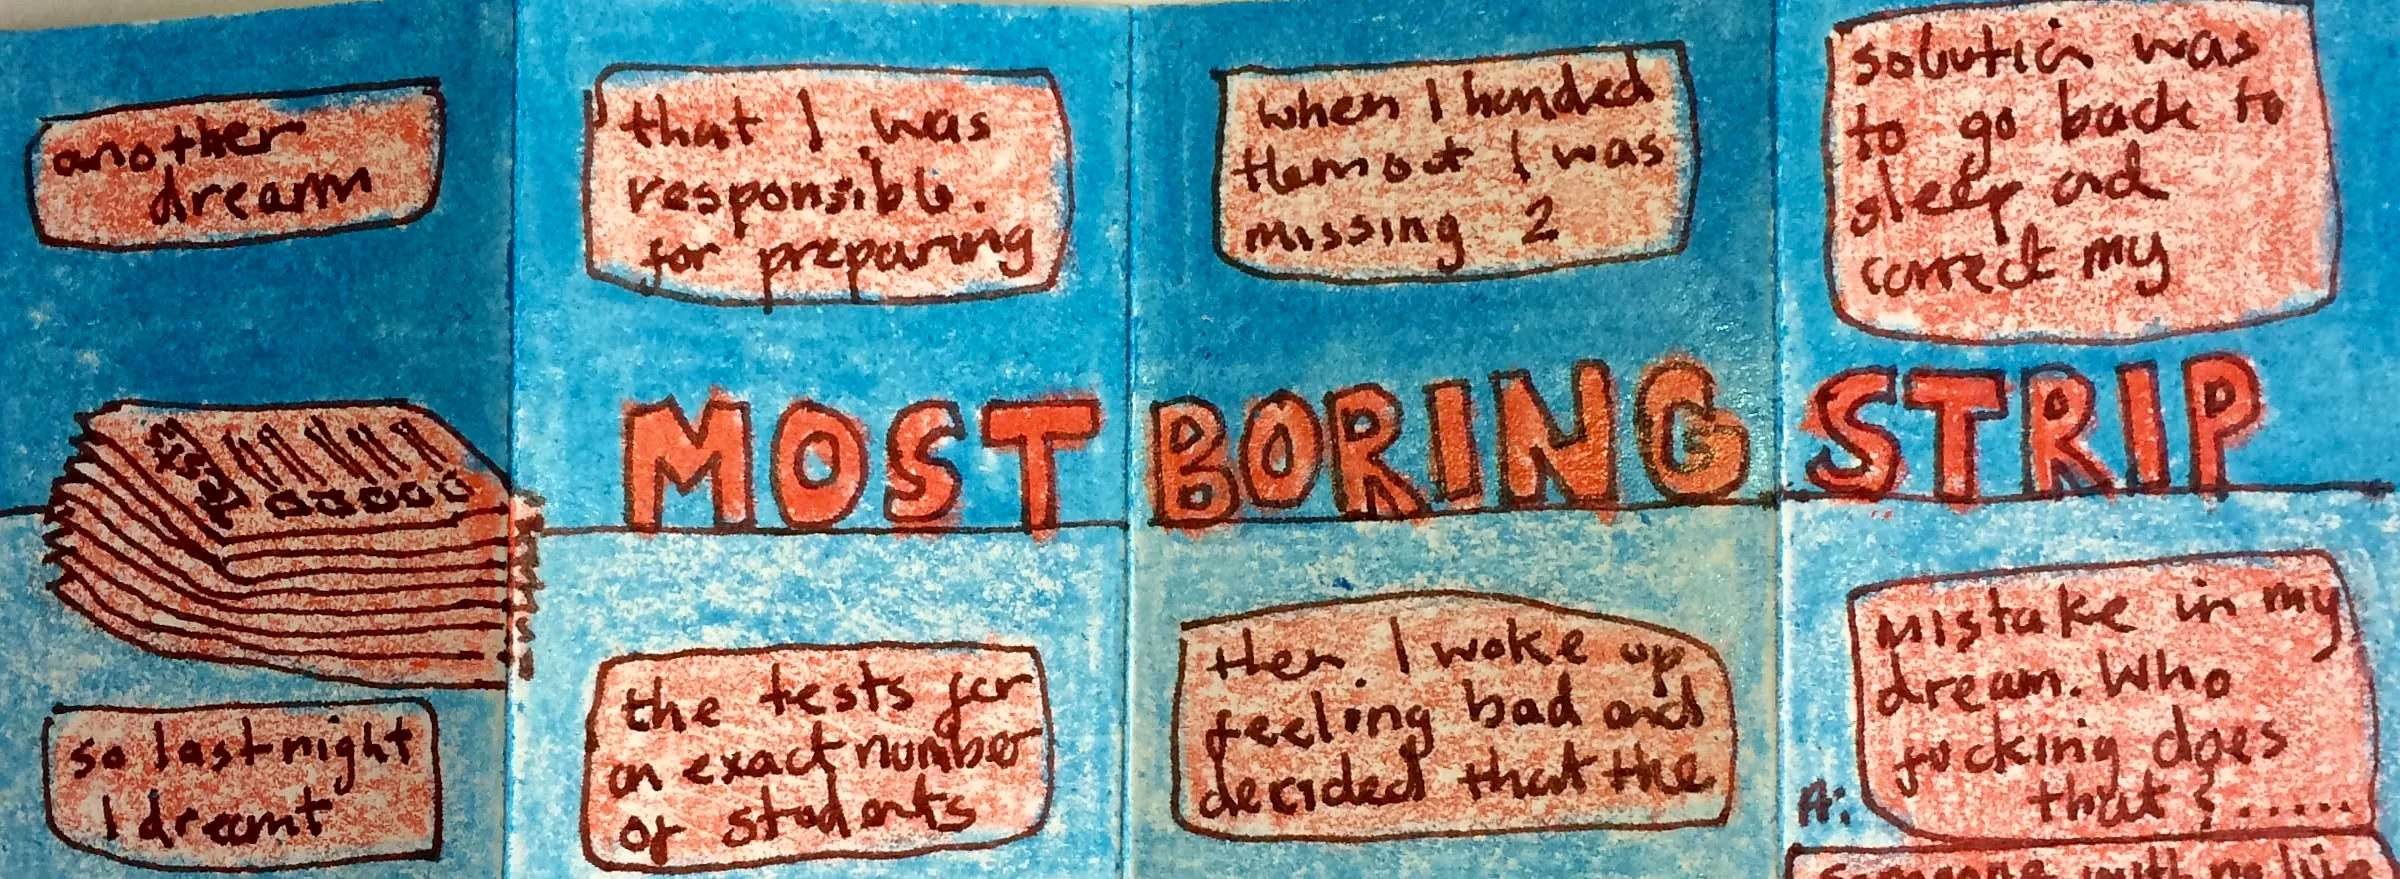 another
dream
so last night
I dreamt
that I was
responsible.
for preparing
the tests for
an exact number
of students
MOST BORING STRIP
when I handed
them out I was
missing 2
then I woke up
feeling bad and
decided that the
solution was
to go back to
sleep and
correct my
mistake in my
dream. Who
fucking does
that?.....
A:
someone with no life